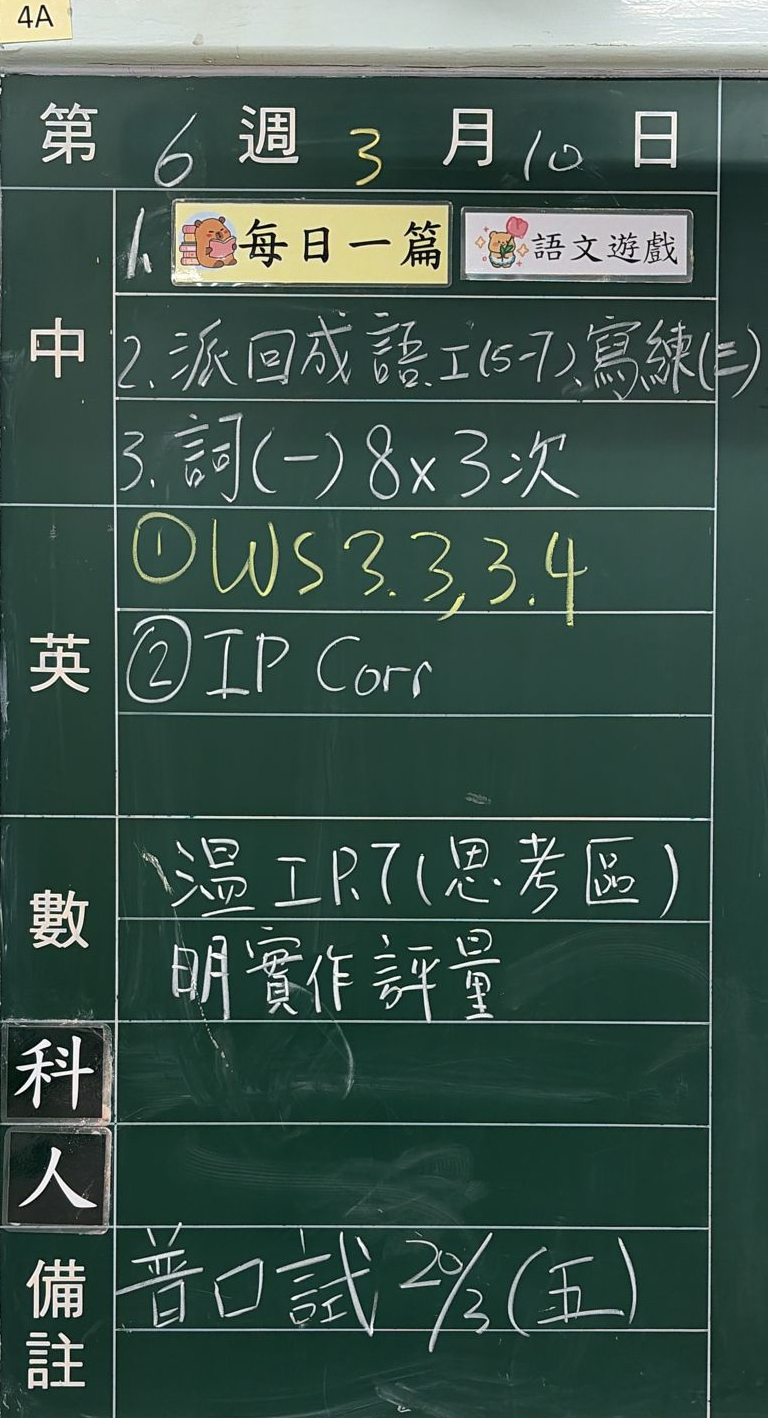 4A
第6週3月10日
中
1. 每日一篇 語文遊戲
2. 派回成語、工(5-7)、寫練(三)
3. 詞(一) 8x3次
英
① WS 3.3, 3.4
② IP Corr
數
溫工P.7(思考區)
明實作評量
科
人
備註
普口試 20/3 (五)